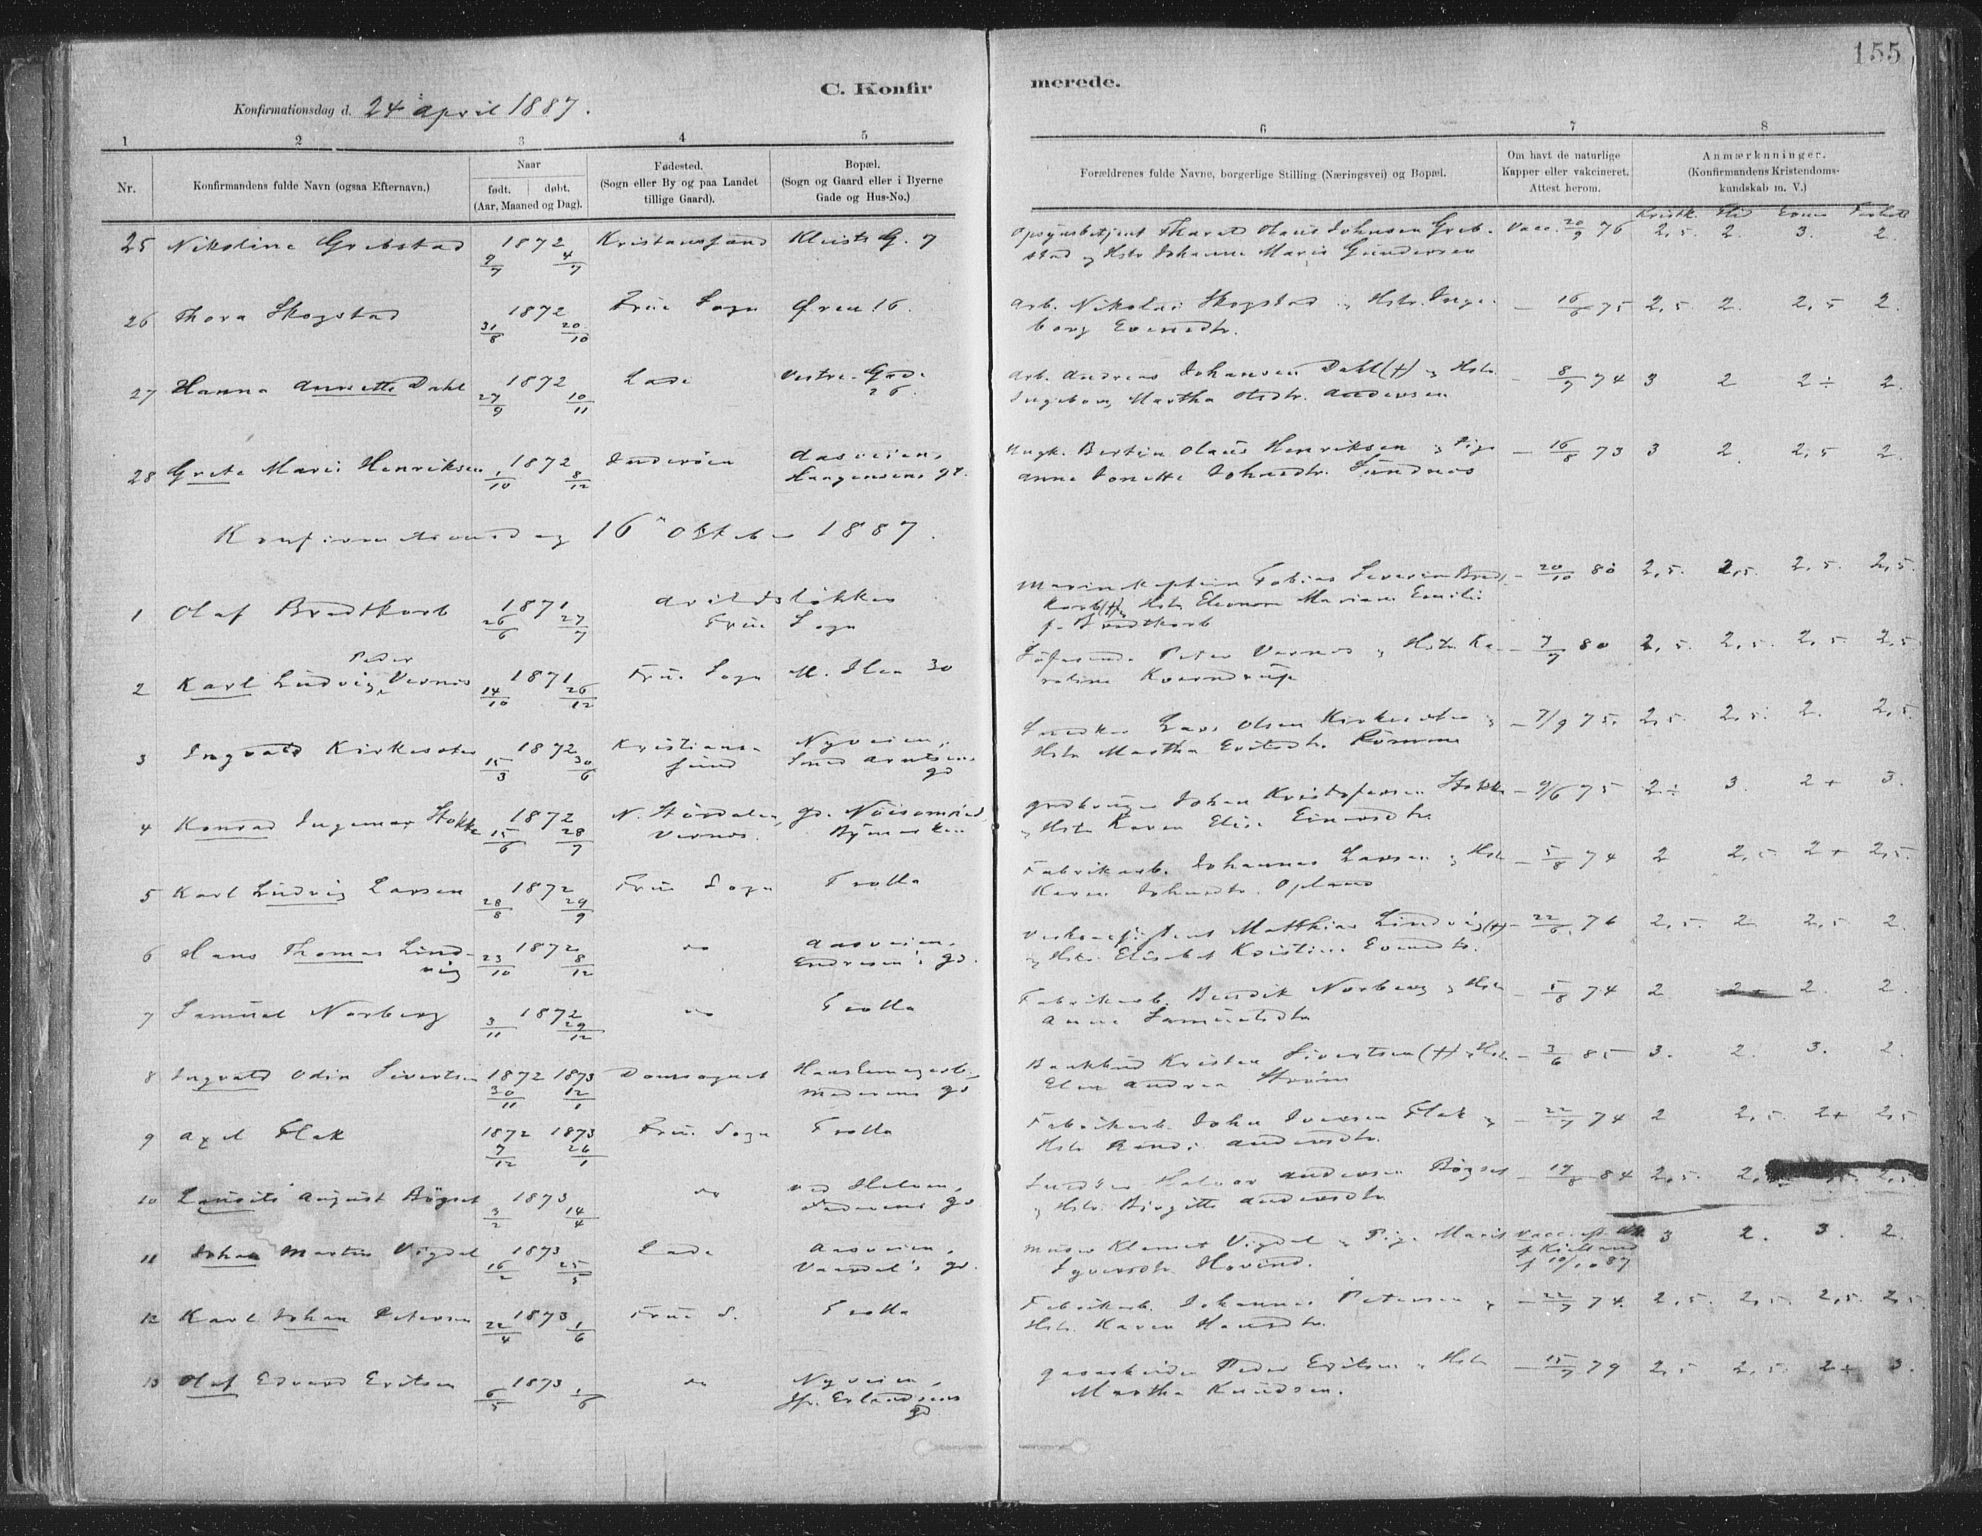 155
C. Konfir merede.
Konfirmationsdag d. 24 april 1887.
1 2 3 4 5 6 7 8
Nr. Konfirmandens fulde Navn (ogsaa Efternavn.) Naar født. døbt. (Aar, Maaned og Dag). Fødested. (Sogn eller By og paa Landet tillige Gaard). Bopæl. (Sogn og Gaard eller i Byerne Gade og Hus-No.)
Forældrenes fulde Navne, borgerlige Stilling (Næringsvei) og Bopæl. Om havt de naturlige Kapper eller vakcineret. Attest herom. Anmærkninger. (Konfirmandens Kristendomskundskab m. V.)
Kristk. Flid Evner Forhold
25 Nikoline Grebstad 1872 9/7 4/7 Kristiansund Kleists G. 7 Opsynsbetjent Tharald Olaus Johnsen Greb- Vacc. 20/9 76 2,5. 2. 3. 2
stad og Hstr Johanne Marie Gundersen
26 Thora Skogstad 1872 31/8 20/10 Frue Sogn Øren 16. Arb. Nikolai Skogstad og Hstr. Inge- — 16/6 75 2,5 2. 2,5 2.
borg Evensdtr.
27 Hanna Annette Dahl 1872 27/9 10/11 Lade Vestre Gade 26. Arb. Andreas Johansen Dahl (+) og Hstr — 8/7 74 3 2 2 ÷ 2.
Ingeborg Martha Olsdtr. Andersen
28 Grete Marie Henriksen 1872 1/10 8/12 Inderøen Aasveien, Haagensens gd. Ungk. Bertin Olaus Henriksen og Pige — 16/8 73 3 2. 2,5 2.
Anne Jonette Johnsdtr. Sundnes
Konfirmationsdag 16de Oktober 1887.
1 Olaf Bredtkorb 1871 26/6 27/7 Arildsløkken Frue Sogn Marinekaptein Tobias Severin Bredt- — 20/10 80 2,5. 2,5. 2,5. 2,5.
korb (+) og Hstr Eleonora Mariane Emilie
f. Bredtkorb
2 Karl Ludvig Peder Vernes 1871 14/10 26/12 Frue Sogn M. Ilen 30 Løfsende Peter Vernes og Hstr. Ka- — 7/7 80 2,5. 2,5. 2,5 2,5
roline Kverndrup
3 Ingvald Kirkesæter 1872 15/3 30/6 Kristiansund Nyveien, Smed Arntsens gd Snedker Lars Olsen Kirkesæter og — 7/9 75. 2,5. 2,5. 2. 2,5
Hstr Martha Eritsdtr. Romme
4 Konrad Ingemar Stokke 1872 15/6 28/7 N. Stördalen, Vernes. gd. Nöisomhed, Bymarken Grdbruger Johan Kristofersen Stokke — 9/6 75 2÷ 3. 2+ 3.
og Hstr Karen Elise Einersdtr
5 Karl Ludvig Larsen 1872 28/8 29/9 Frue Sogn Trolla Fabrikarb. Johannes Larsen og Hstr — 5/8 74 2 2,5 2+ 2,5.
Karen Johnsdtr. Opland
6 Hans Thomas Lind- 1872 23/10 8/12 do Aasveien, Endresen's gd. Matthias Lindvig (+) — 22/6 76 2,5. 2 2,5 2.
vig og Hstr. Elisabet Kristine Evensdtr.
7 Samuel Norberg 1872 3/11 29/12 do Trolla Fabrikarb. Bendik Norberg og Hstr — 5/8 74 2 2+ 2. 2.
Anne Samuelsdtr
8 Ingvald Odin Sivertsen 1872 1873 30/11 12/1 Domsognet Baakbud Kristen Sivertsen (+) og Hstr — 3/6 85 3. 2. 3. 2.
Elen Andrea Strøm
9 Axel Flak 1872 1873 7/12 26/1 Frue Sogn Trolla Fabrikarb. John Iversen Flak og — 22/7 74 2 2,5. 2+ 2,5
Hstr Randi Andersdtr.
10 Laurits August Bögset 1873 3/2 14/4 do ved Helven, Snedker Halvor Andersen Bögset — 17/8 84 2,5. 2,5
og Hstr. Birgitte Andersdtr
11 Johan Martin Vigdal 1873 16/2 25/5 Lade Aasveien, Vaardal's gd. Murer Klemet Vigdal og Pige Marit Vacc. 3 2. 3. 2.
Syversdtr Hovind. 10/10 87
12 Karl Johan Petersen 1873 22/4 1/6 Frue S. Trolla Fabrikarb. Johannes Petersen og — 22/7 74. 2,5. 2,5 2,5. 2,5.
Hstr. Karen Hansdtr.
13 Olaf Edvard Eritsen 1873 6/5 1/6 do Nyveien, Jfr. Erlandsens gd Gasarbeider Peder Eritsen og Hstr — 15/7 79 2,5 2,5. 2+ 3.
Martha Knudsen.